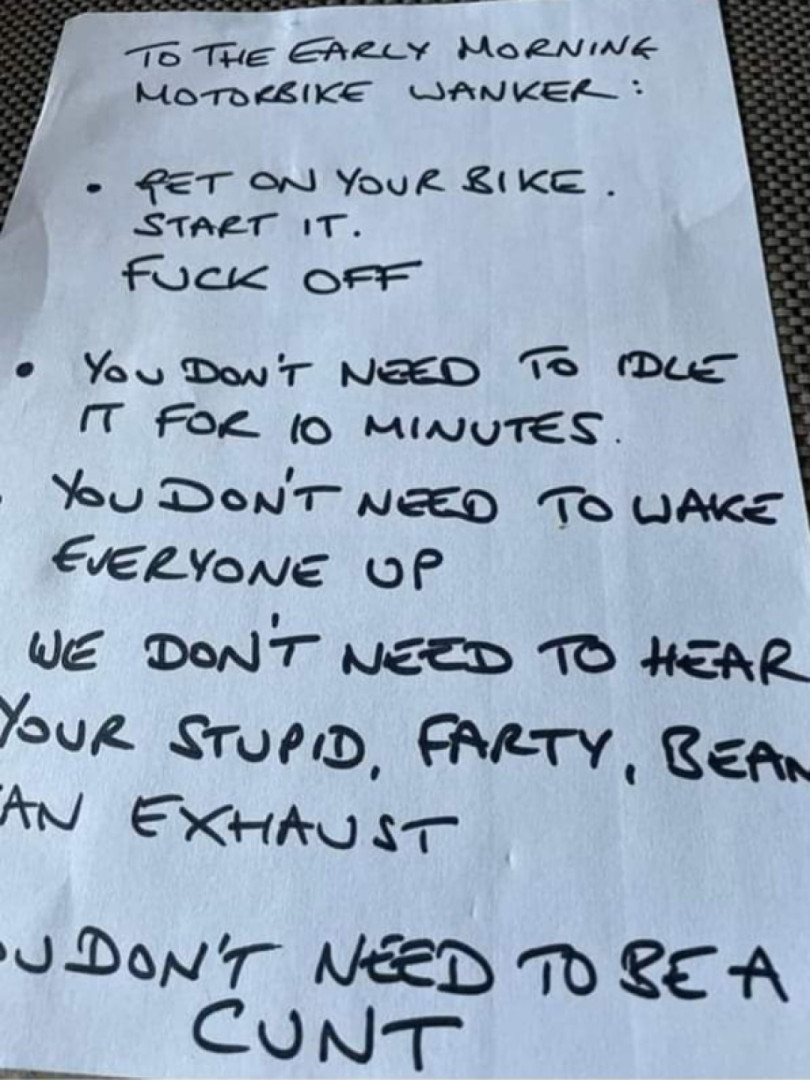 TO THE EARLY MORNING
MOTORBIKE WANKER:
• GET ON YOUR BIKE.
START IT.
FUCK OFF
• YOU DON'T NEED TO IDLE
IT FOR 10 MINUTES.
YOU DON'T NEED TO WAKE
EVERYONE UP
WE DON'T NEED TO HEAR
YOUR STUPID, FARTY, BEAN
AN EXHAUST
OU DON'T NEED TO BE A
CUNT